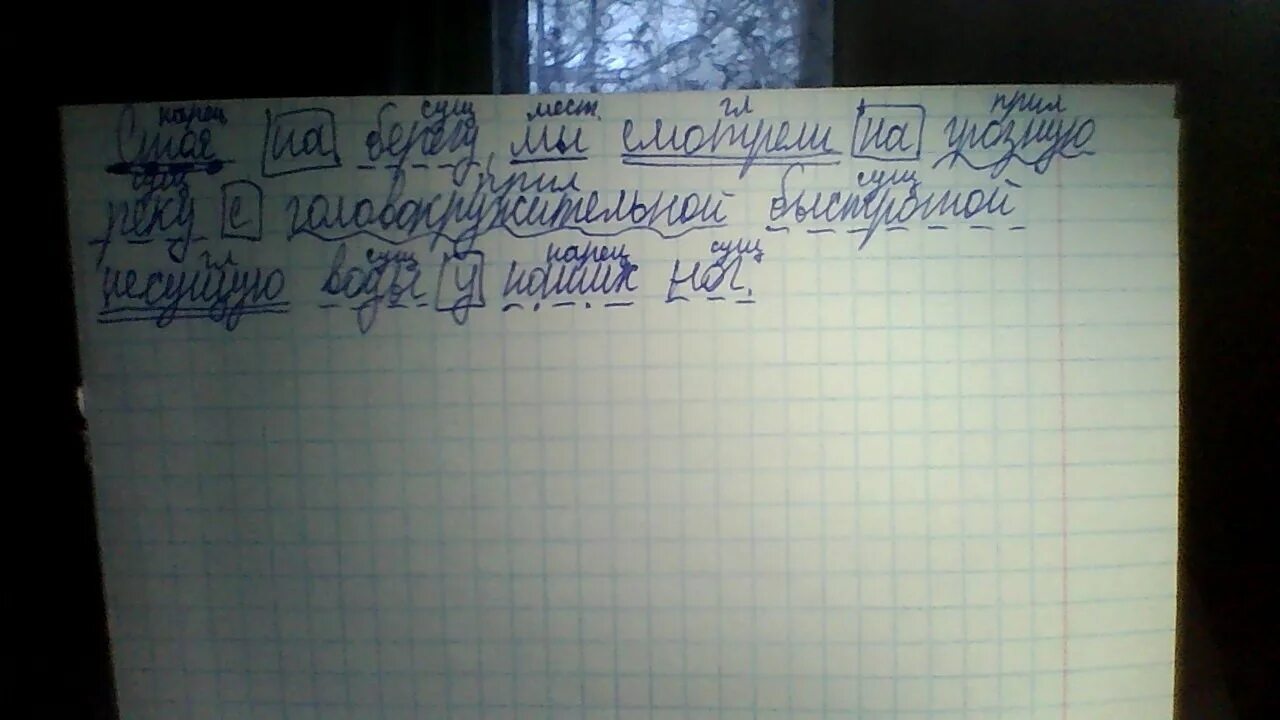 нареч сущ мест. гл прил
Стоя на берегу, мы смотрем на грозную
сущ прил сущ
реку с головокружительной быстротой
гл сущ нареч сущ
несущую воды у наших ног.